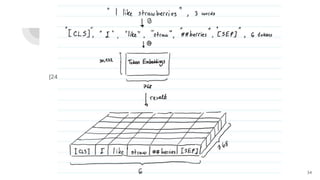 "I like strawberries", 3 words
↓ ①
"[CLS]", "I", "like", "straw", "##berries", "[SEP]", 6 tokens
↓ ②
30,522
Token Embeddings
[24
768
↓ result
[CLS] I like straw ##berries [SEP]
768
6
34